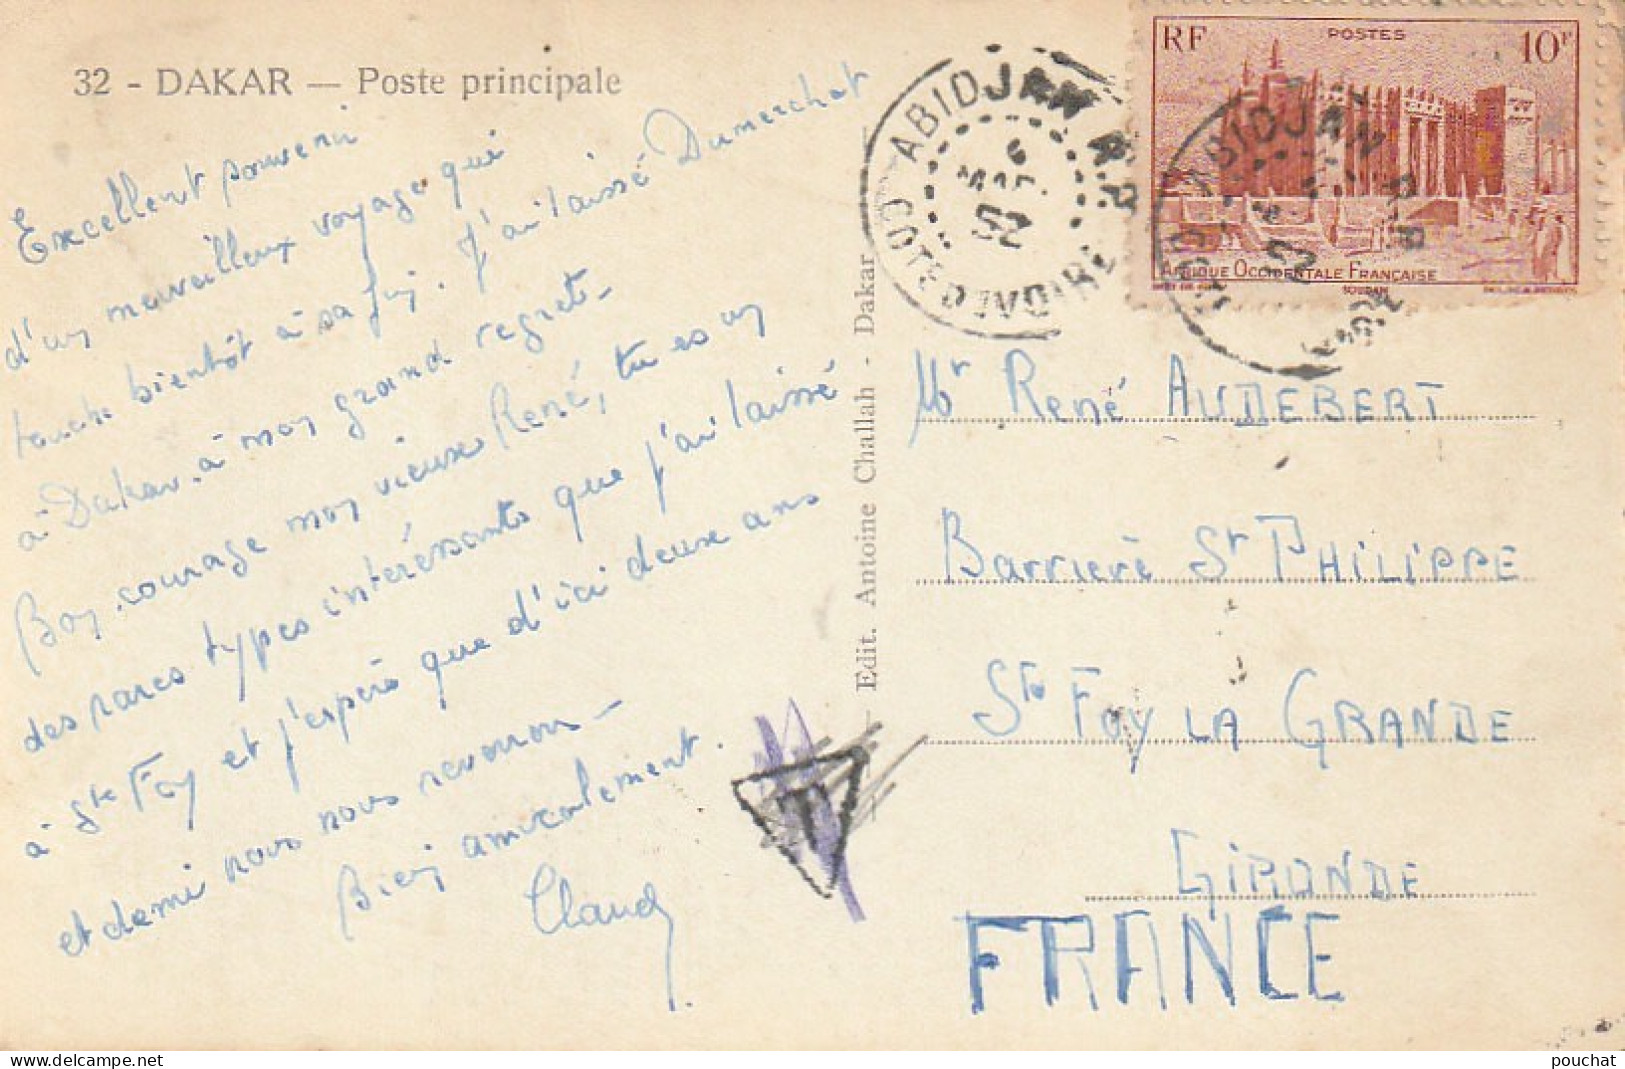 32 - DAKAR — Poste principale
Excellent souvenir
d'un merveilleux voyage qui
touche bientôt à sa fin. J'ai laissé Dumerchat
à Dakar, à mon grand regret -
Bon courage mon vieux René, tu es un
des rares types intéressants que j'ai laissé
à Ste Foy et j'espère que d'ici deux ans
et demi nous nous reverrons -
Bien amicalement.
Claude
Edit. Antoine Challah - Dakar
ABIDJAN R.P.
52
COTE D'IVOIRE
RF
POSTES
10F
AFRIQUE OCCIDENTALE FRANÇAISE
SOUDAN
ABIDJAN R.P.
52
T
Mr René AUDEBERT
Barrière St PHILIPPE
Ste FOY LA GRANDE
GIRONDE
FRANCE
delcampe.net
pouchat